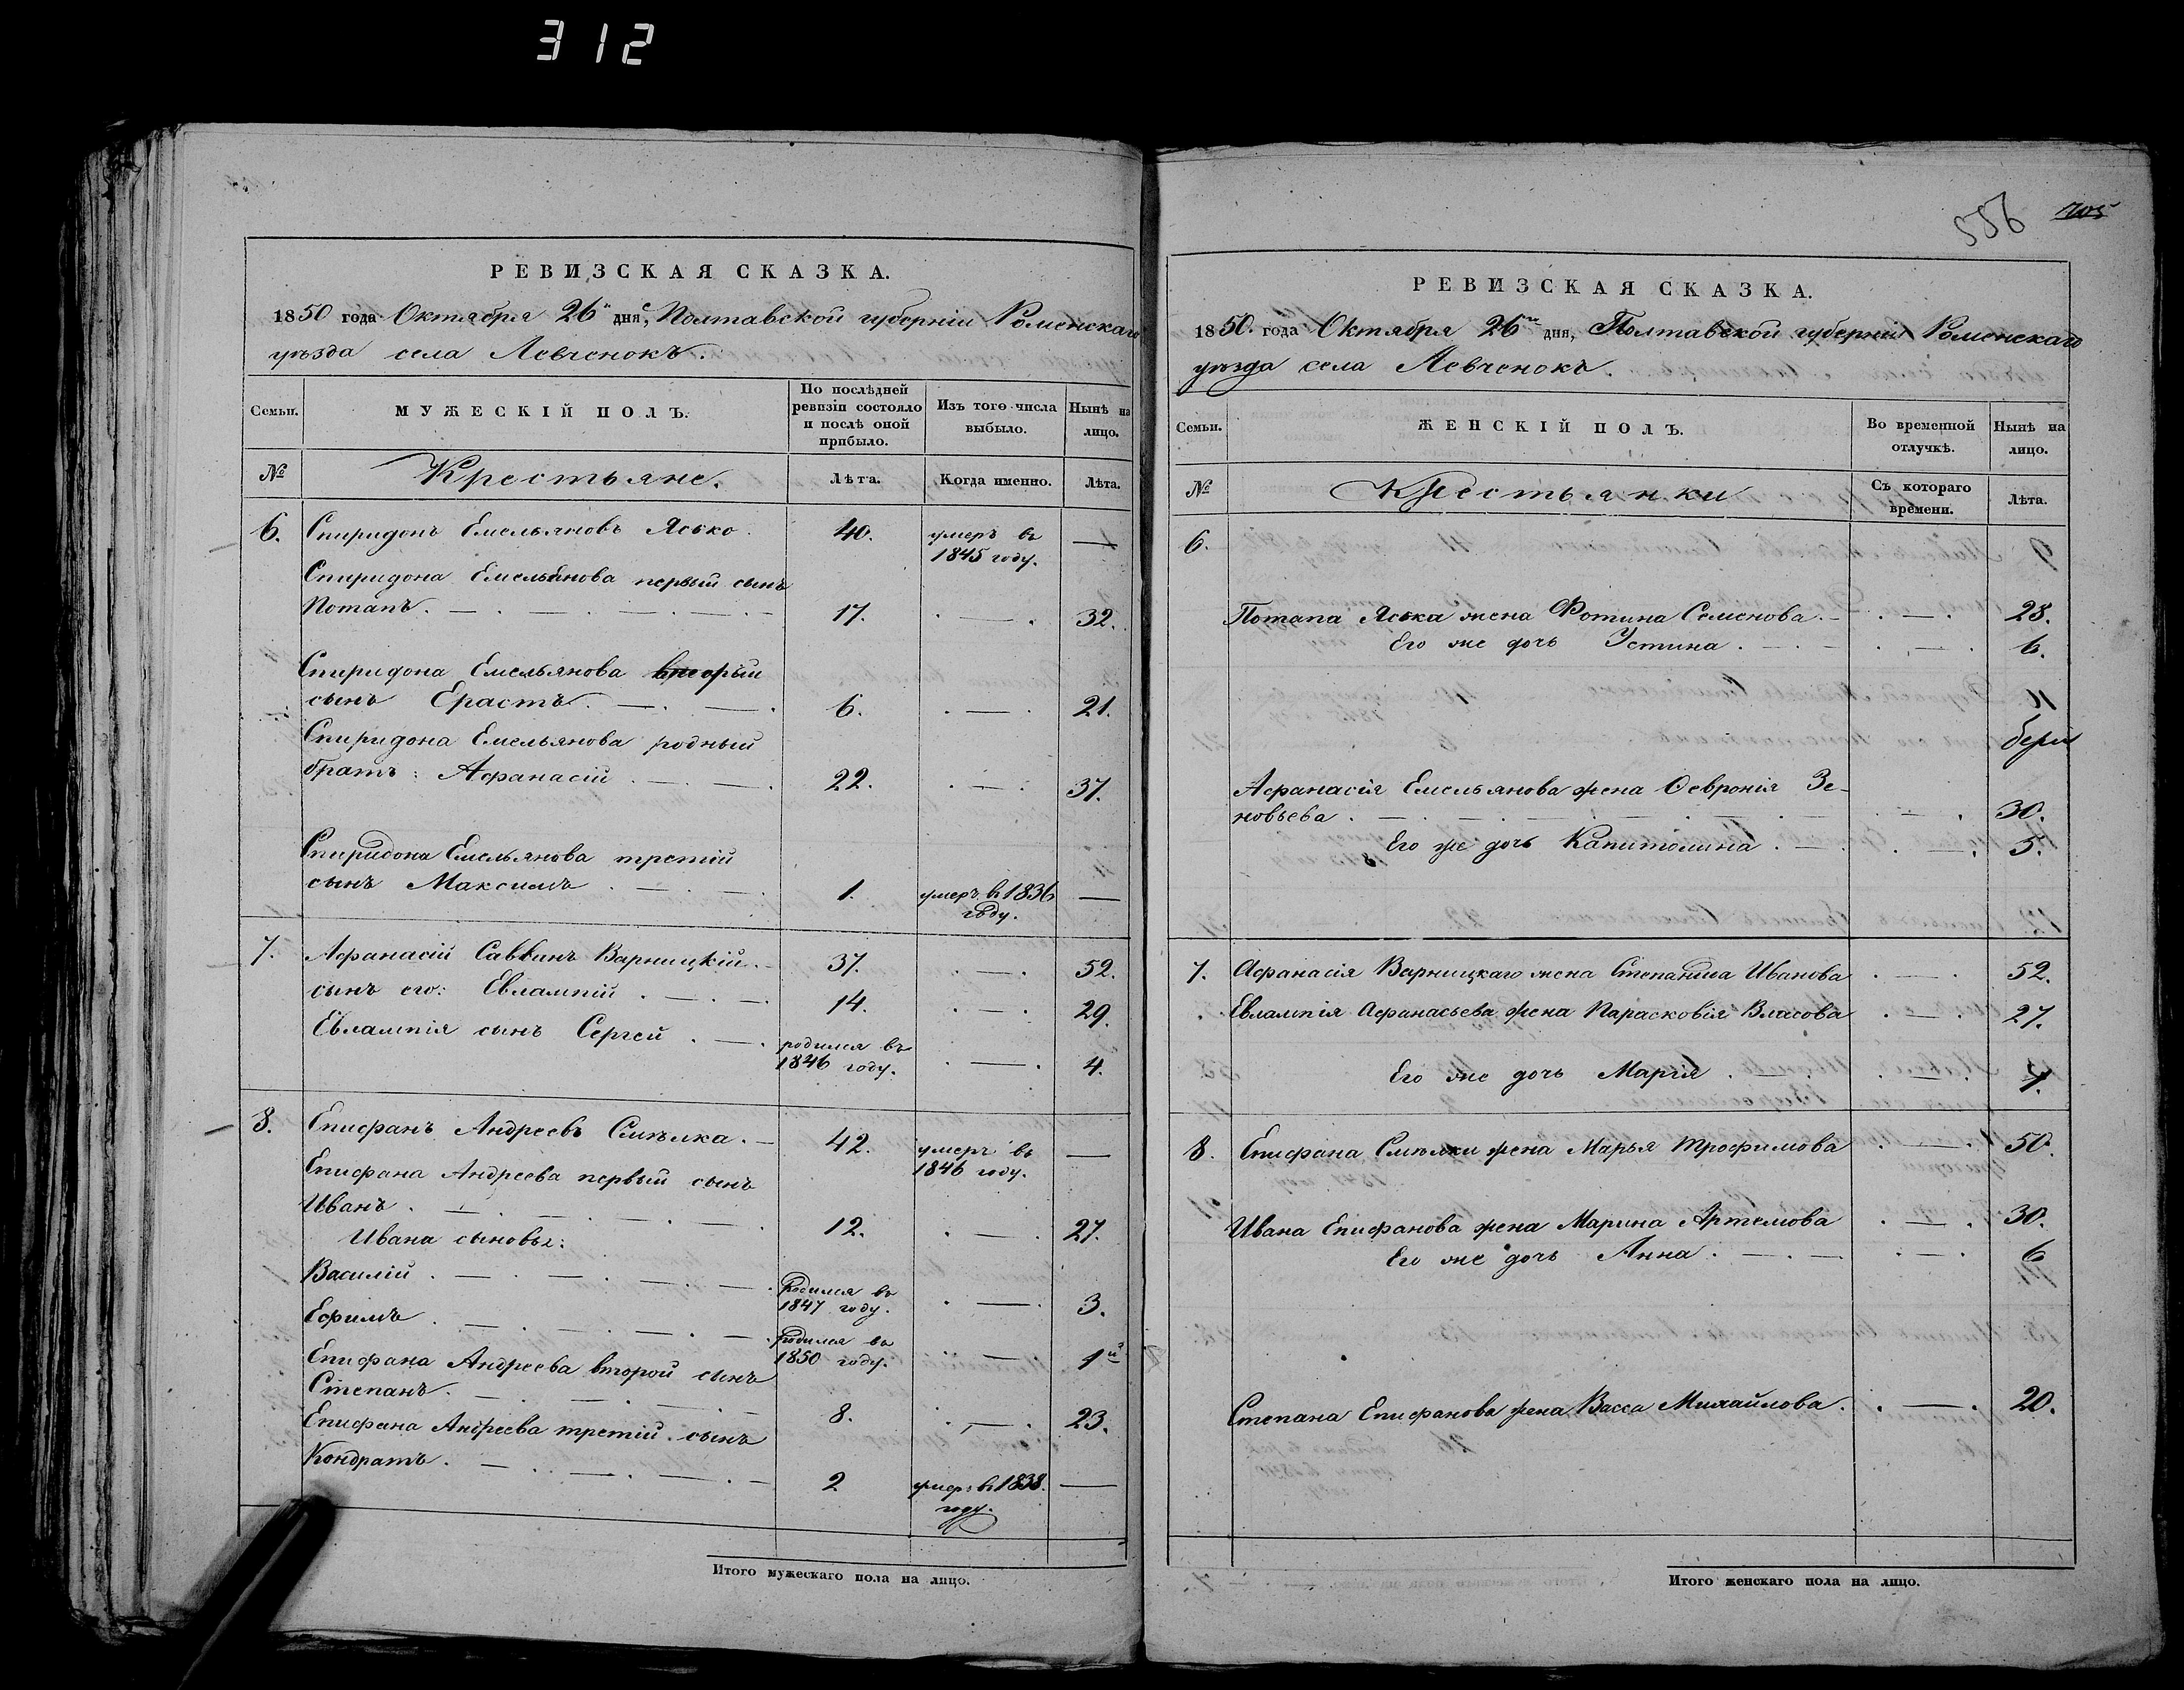 312
РЕВИЗСКАЯ СКАЗКА.
1850 года Октября 26 дня, Полтавской губерніи Роменскаго
уѣзда села Левченокъ.
Семьи.
МУЖЕСКІЙ ПОЛЪ.
По послѣдней
ревизіи состояло
и послѣ оной
прибыло.
Изъ того числа
выбыло.
Нынѣ на
лицо.
№
Крестьяне.
Лѣта.
Когда именно.
Лѣта.
6. Спиридонъ Емельяновъ Ясько. 40. умеръ въ —
1845 году.
Спиридона Емельянова первый сынъ
Потапъ. 17. 32.
Спиридона Емельянова вторый
сынъ Ерастъ. 6. 21.
Спиридона Емельянова родный
братъ: Афанасій 22. 37.
Спиридона Емельянова третій
сынъ Максимъ 1. умеръ въ 1836 —
году.
7. Афанасій Саввинъ Варницкій. 37. 52.
сынъ его: Евлампій 14. 29.
Евлампія сынъ Сергей родился въ
1846 году. 4.
8. Епифанъ Андреевъ Смѣлка. 42. умеръ въ —
1846 году.
Епифана Андреева первый сынъ
Иванъ. 12. 27.
Ивана сыновья:
Василій родился въ
1847 году. 3.
Ефимъ родился въ
1850 году. 1й
Епифана Андреева второй сынъ
Степанъ. 8. 23.
Епифана Андреева третій сынъ
Кондратъ. 2 умеръ въ 1838. —
году.
Итого мужескаго пола на лицо.
556 705
РЕВИЗСКАЯ СКАЗКА.
1850. года Октября 26 дня, Полтавской губерніи Роменскаго
уѣзда села Левченокъ.
Семьи.
ЖЕНСКІЙ ПОЛЪ.
Во временной
отлучкѣ.
Нынѣ на
лицо.
№
Крестьянки
Съ котораго
времени.
Лѣта.
6.
Потапа Яська жена Фотина Семенова. 28.
Его же дочь Устина. 6.
Афанасія Емельянова жена Февронія Зе-
новьева. 30.
Его же дочь Капитолина 5.
7. Афанасія Варницкаго жена Степанида Иванова 52.
Евлампія Афанасьева жена Парасковія Власова 27.
Его же дочь Марія
8. Епифана Смѣлки жена Марья Трофимова 50.
Ивана Епифанова жена Марина Артемова 30.
Его же дочь Анна. 6
Степана Епифанова жена Васса Михайлова. 20.
Итого женскаго пола на лицо.